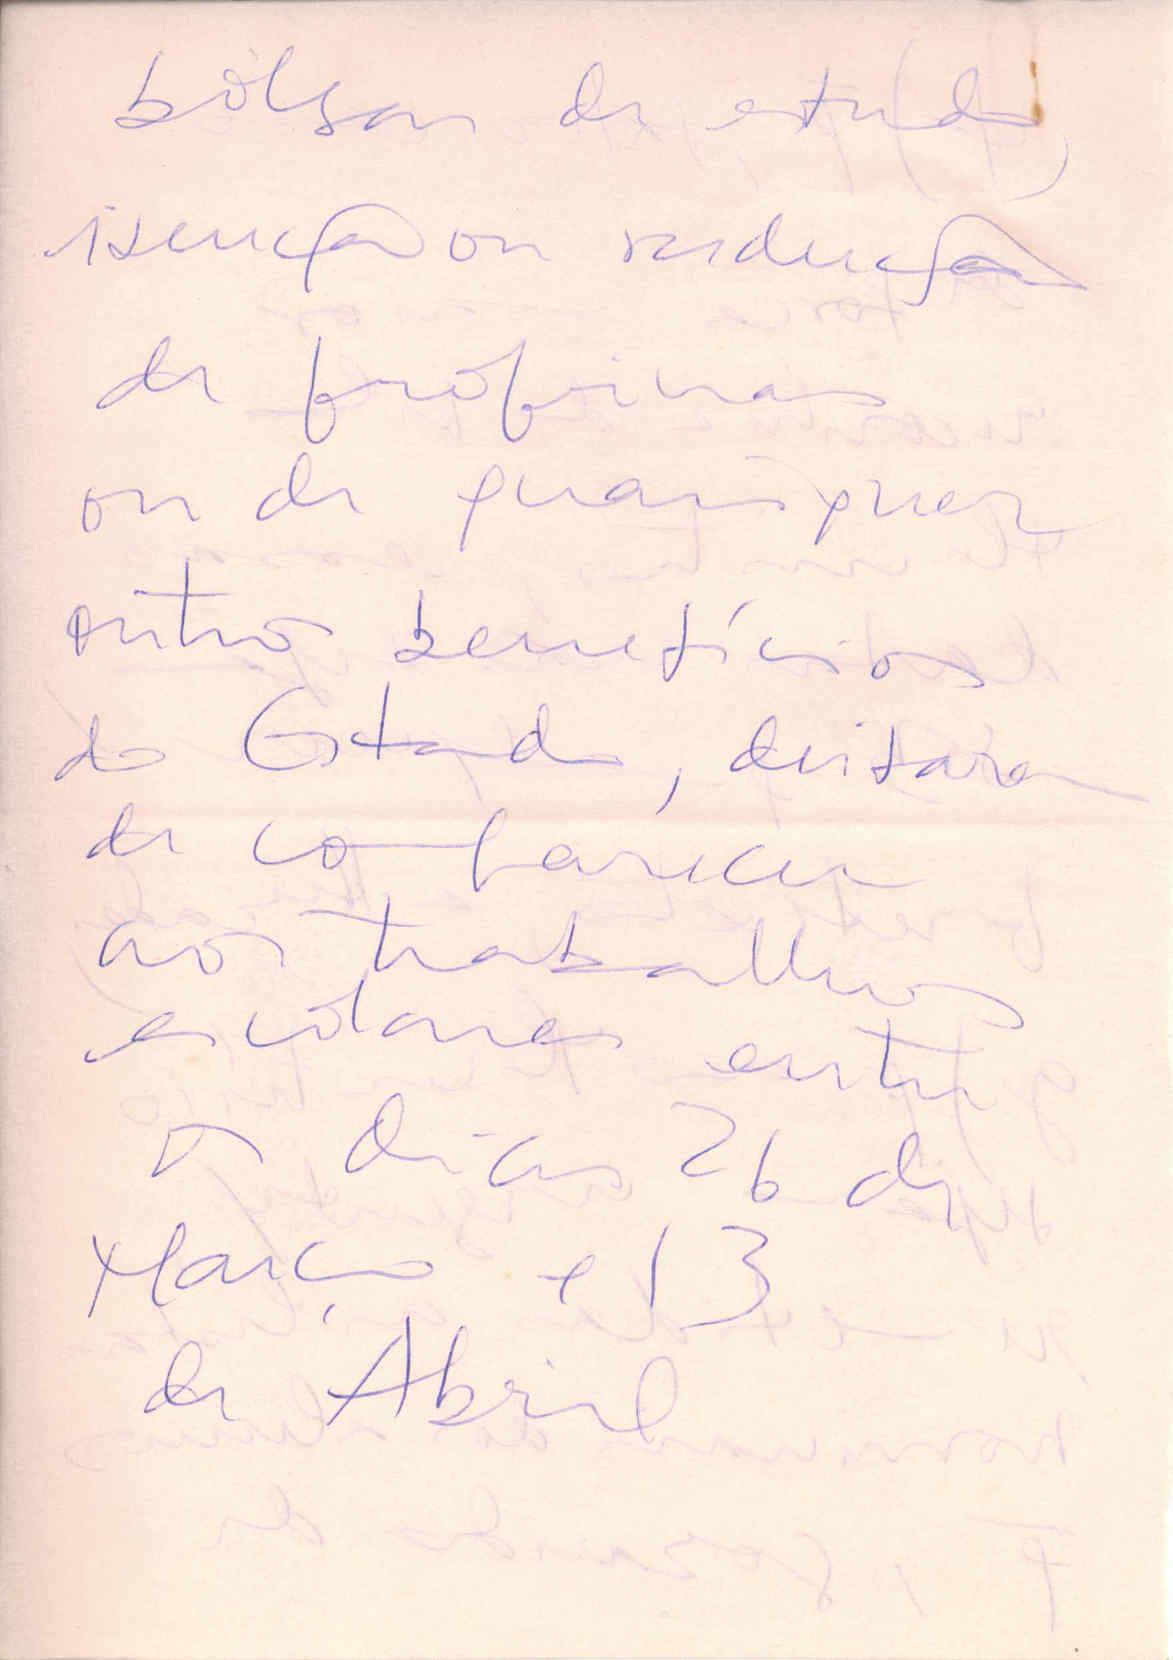 bolsas de estudo,
isenção ou redução
de propinas
ou de quaisquer
outros benefícios
do Estado, deixaram
de comparecer
aos trabalhos
escolares entre
os dias 26 de
Março e 13
de Abril